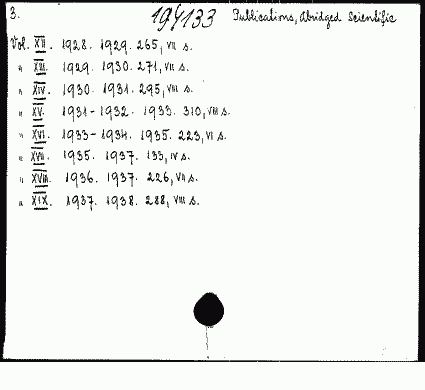 3. 194133 Publications, Abridged Scientific
Vol. XII. 1928. 1929. 265, VII s.
" XIII. 1929. 1930. 271, VII s.
" XIV. 1930. 1931. 295, VIII s.
" XV. 1931-1932. 1933. 310, VIII s.
" XVI. 1933-1934. 1935. 223, VI s.
" XVII. 1935. 1937. 133, IV s.
" XVIII. 1936. 1937. 226, VII s.
" XIX. 1937. 1938. 288, VIII s.